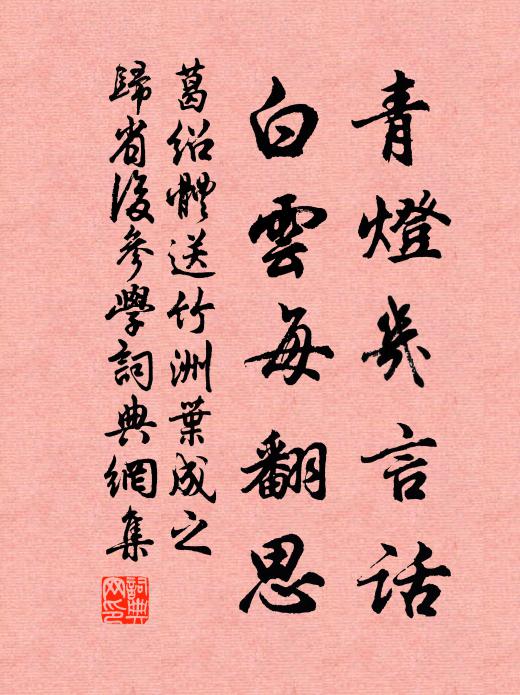 青燈幾言話
白雲每翻思
葛紹體送竹洲葉成之
歸省後參學詞典網集
詞典網印